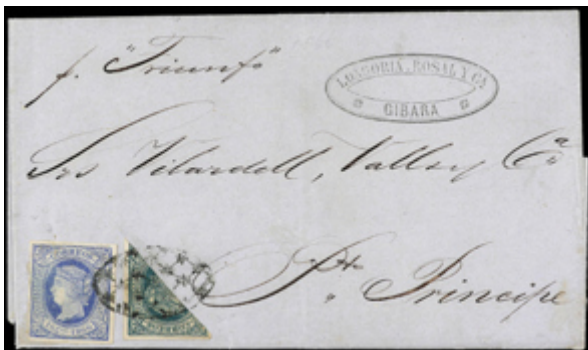 p. "Triunfo"
LONGORIA, ROSAL Y Ca
GIBARA
Srs Vilardell, Valls y Ca
Pto Principe
CORREOS